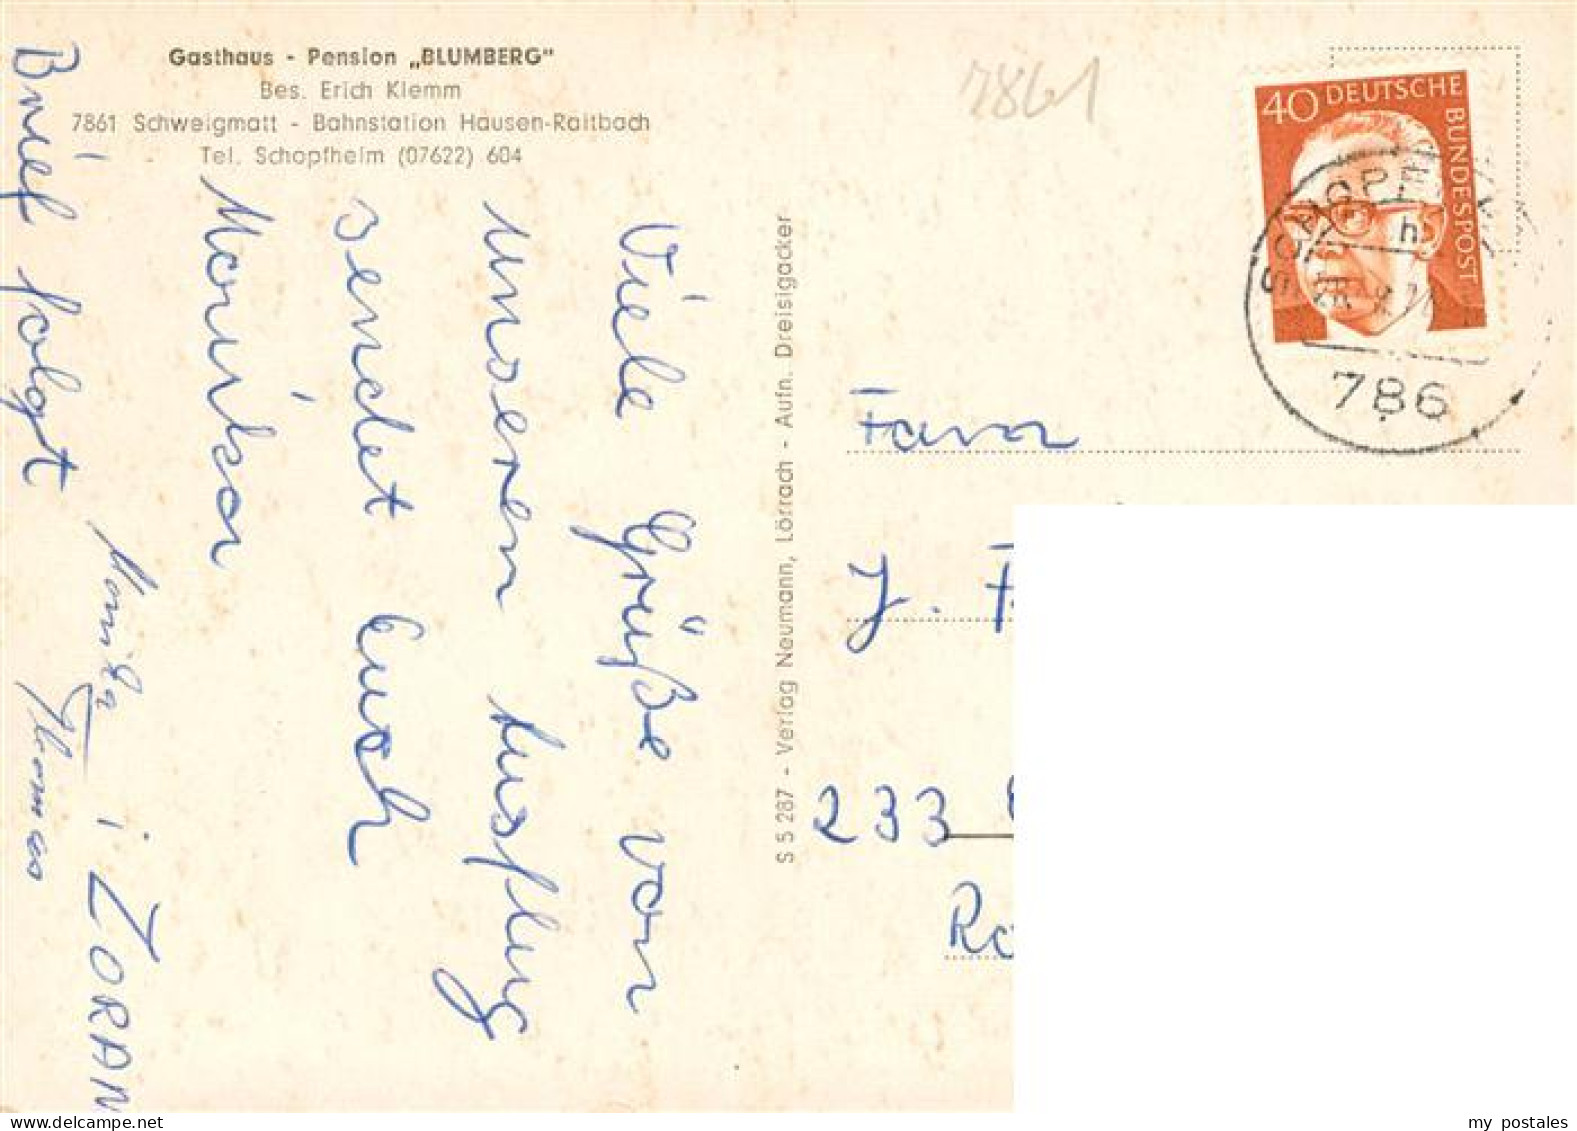 Gasthaus - Pension „BLUMBERG"
Bes. Erich Klemm
7861 Schweigmatt - Bahnstation Hausen-Raitbach
Tel. Schopfheim (07622) 604
Viele Grüße von
unseren Ausflug
sendet Euch
Monika
Monika
Thomas
i ZORAN
Brief folgt
S 5 287 - Verlag Neumann, Lörrach - Aufn. Dreisigacker
7861
40 DEUTSCHE BUNDESPOST
786
h
J.
233
my postales